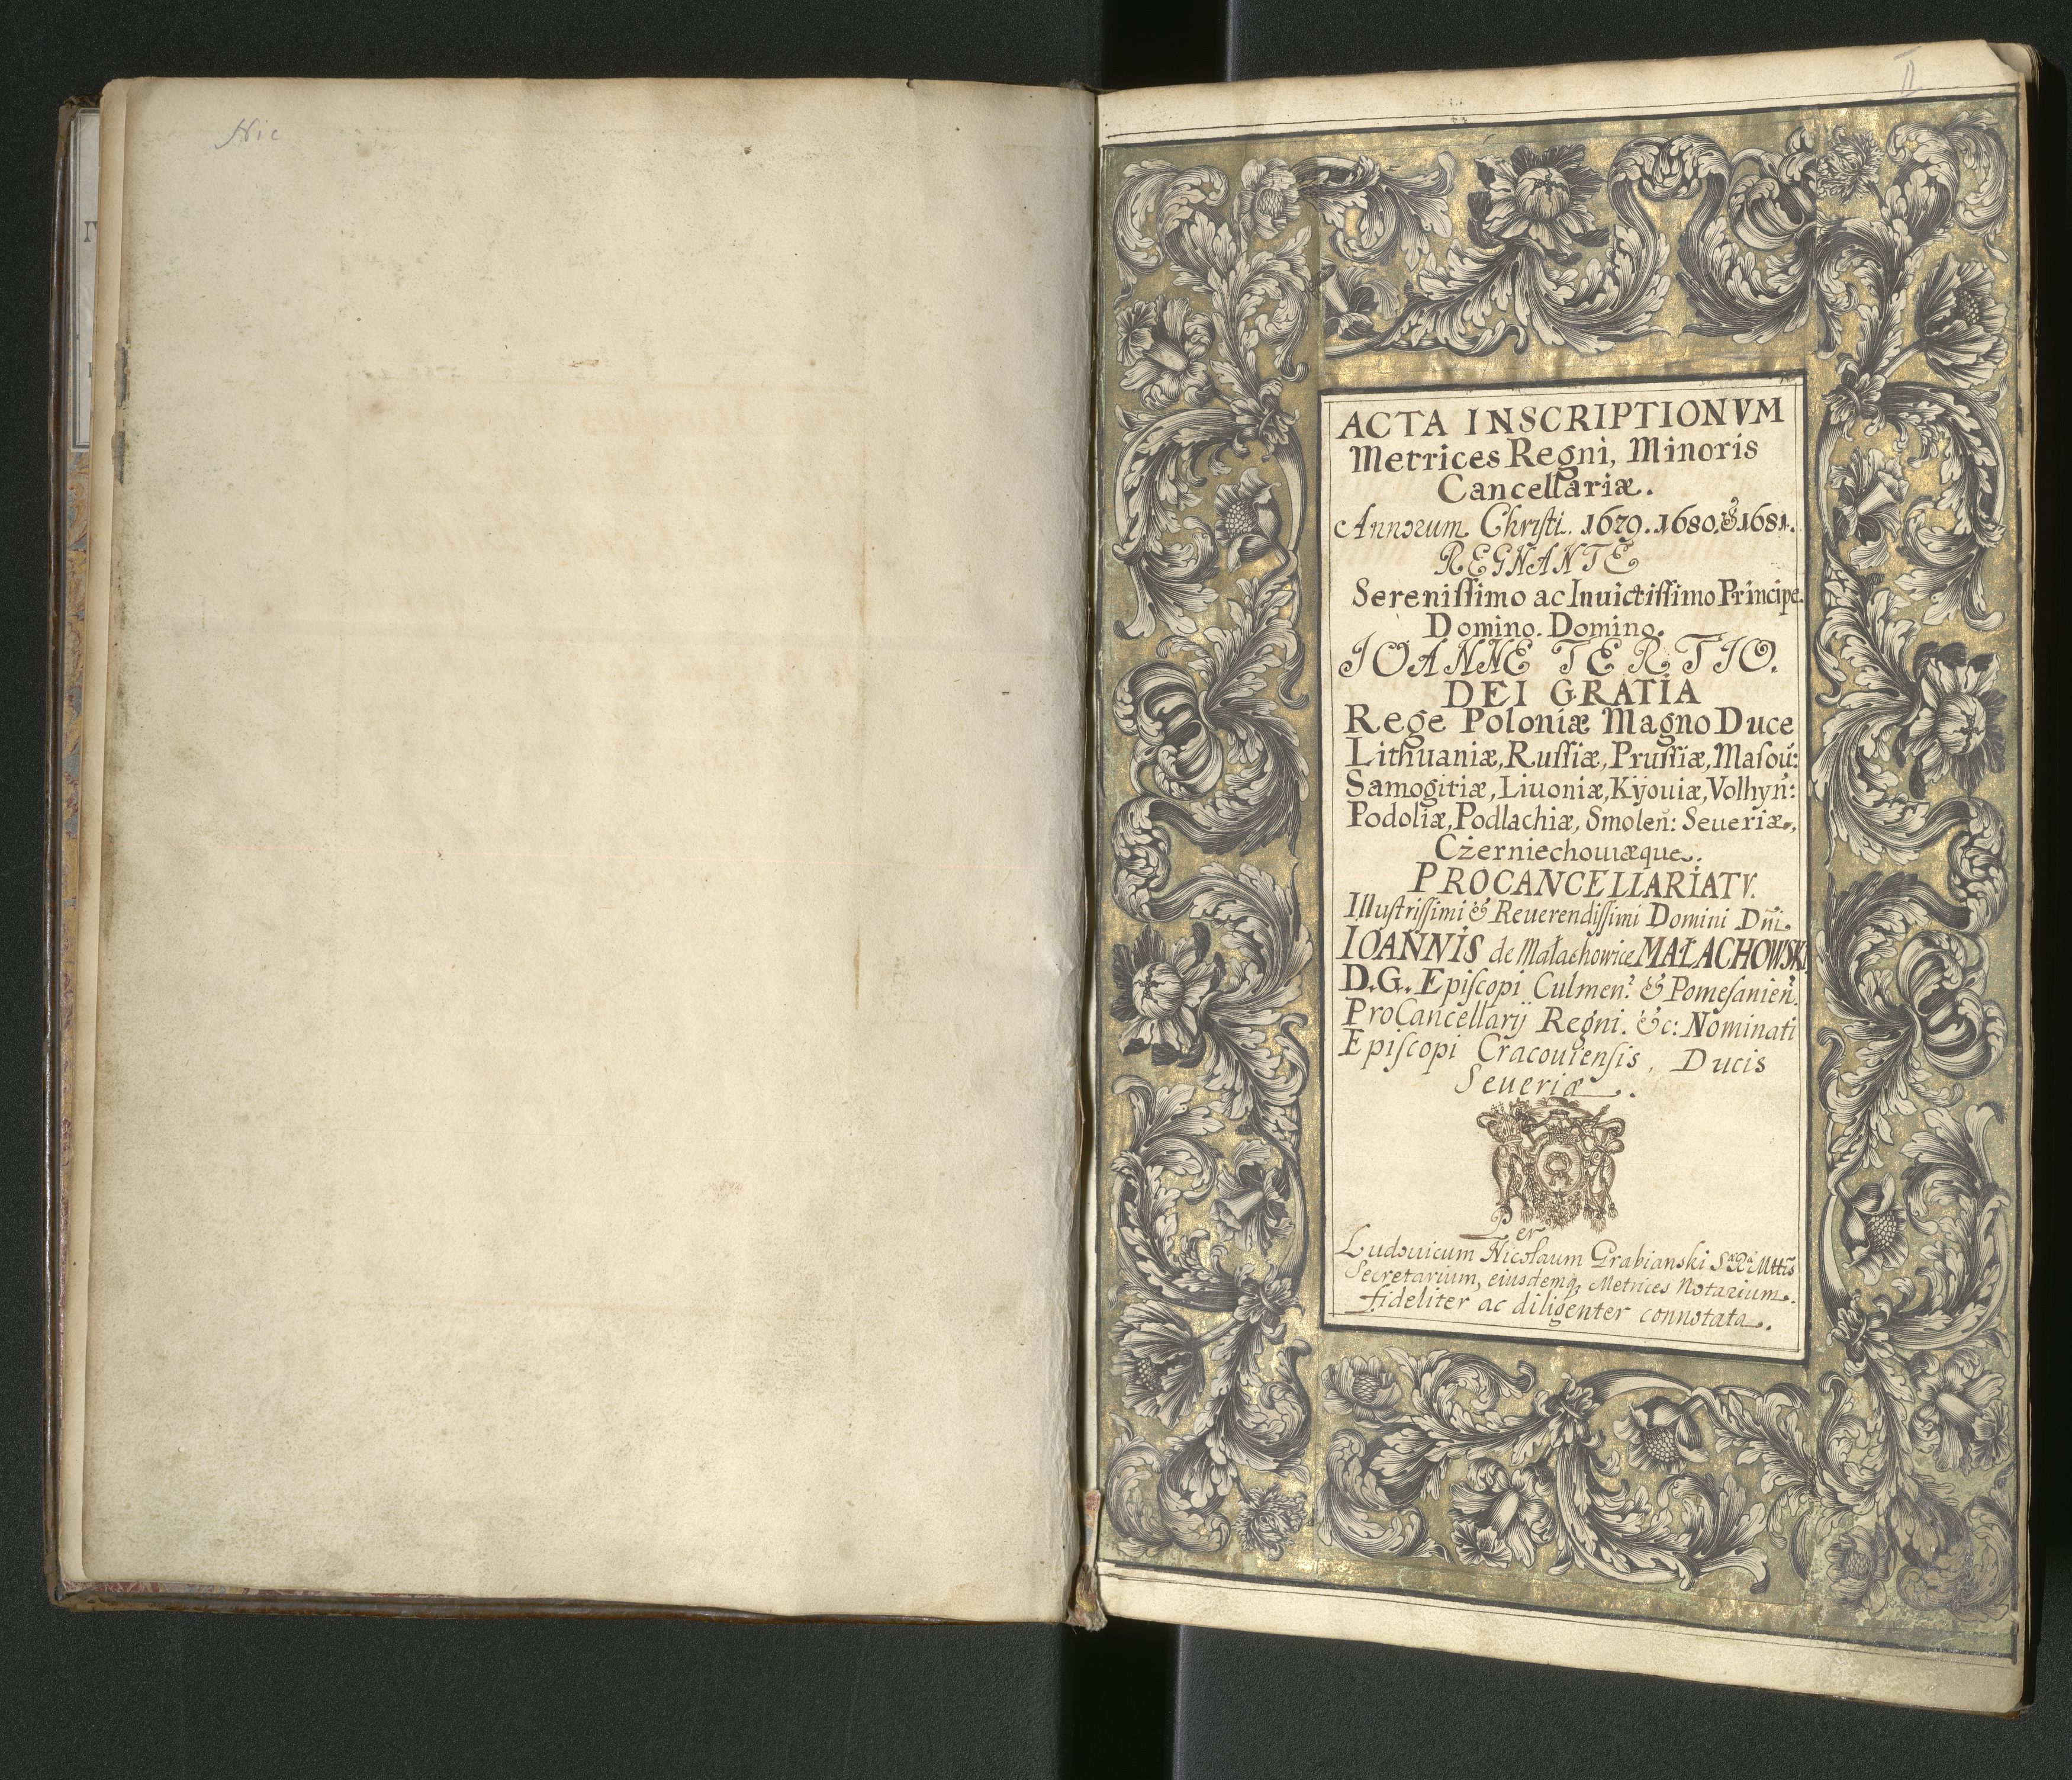 Nic
II
ACTA INSCRIPTIONVM
Metrices Regni, Minoris
Cancellariæ.
Annorum Christi. 1679. 1680. & 1681.
REGNANTE
Sereniſſimo ac Inuictiſſimo Principe.
Domino. Domino.
IOANNE TERTIO.
DEI GRATIA
Rege Poloniæ Magno Duce
Lithuaniæ, Ruſſiæ, Pruſſiæ, Maſou:
Samogitiæ, Liuoniæ, Kÿouiæ, Volhyn:
Podoliæ, Podlachiæ, Smolen: Seueriæ,
Czerniechouiæque.
PROCANCELLARIATV.
Illuſtriſſimi & Reuerendiſſimi Domini Dnī.
IOANNIS de Małachowice MAŁACHOWSKI
D.G. Epiſcopi Culmen: & Pomeſanien.
ProCancellarij Regni. &c: Nominati
Epiſcopi Cracouienſis, Ducis
Seueriæ.
Per
Ludouicum Nicolaum Grabianski S. R. Mttis
Secretarium, eiusdemq; Metrices Notarium.
fideliter ac diligenter connotata.